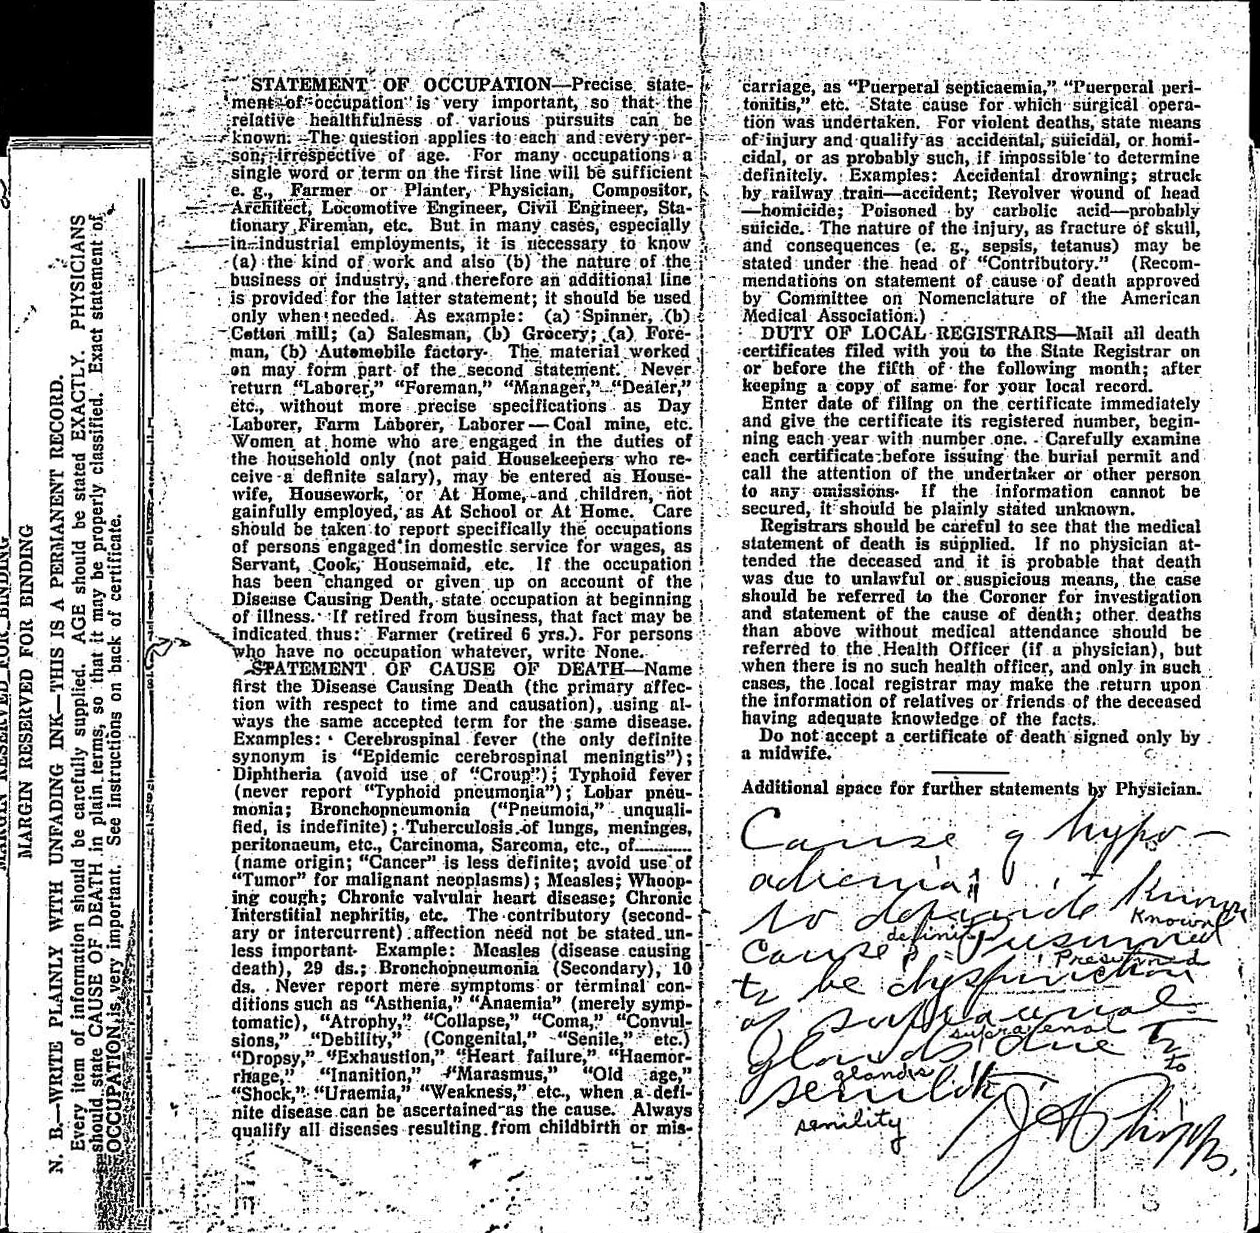 MARGIN RESERVED FOR BINDING
MARGIN RESERVED FOR BINDING
N. B.—WRITE PLAINLY WITH UNFADING INK—THIS IS A PERMANENT RECORD.
Every item of information should be carefully supplied. AGE should be stated EXACTLY. PHYSICIANS
should state CAUSE OF DEATH in plain terms, so that it may be properly classified. Exact statement of
OCCUPATION is very important. See instructions on back of certificate.
STATEMENT OF OCCUPATION—Precise state-
ment of occupation is very important, so that the
relative healthfulness of various pursuits can be
known. The question applies to each and every per-
son, irrespective of age. For many occupations a
single word or term on the first line will be sufficient
e. g., Farmer or Planter, Physician, Compositor,
Architect, Locomotive Engineer, Civil Engineer, Sta-
tionary Fireman, etc. But in many cases, especially
in industrial employments, it is necessary to know
(a) the kind of work and also (b) the nature of the
business or industry, and therefore an additional line
is provided for the latter statement; it should be used
only when needed. As example: (a) Spinner, (b)
Cotton mill; (a) Salesman, (b) Grocery; (a) Fore-
man, (b) Automobile factory. The material worked
on may form part of the second statement. Never
return "Laborer," "Foreman," "Manager," "Dealer,"
etc., without more precise specifications as Day
Laborer, Farm Laborer, Laborer—Coal mine, etc.
Women at home who are engaged in the duties of
the household only (not paid Housekeepers who re-
ceive a definite salary), may be entered as House-
wife, Housework, or At Home, and children, not
gainfully employed, as At School or At Home. Care
should be taken to report specifically the occupations
of persons engaged in domestic service for wages, as
Servant, Cook, Housemaid, etc. If the occupation
has been changed or given up on account of the
Disease Causing Death, state occupation at beginning
of illness. If retired from business, that fact may be
indicated thus: Farmer (retired 6 yrs.). For persons
who have no occupation whatever, write None.
STATEMENT OF CAUSE OF DEATH—Name
first the Disease Causing Death (the primary affec-
tion with respect to time and causation), using al-
ways the same accepted term for the same disease.
Examples: Cerebrospinal fever (the only definite
synonym is "Epidemic cerebrospinal meningtis");
Diphtheria (avoid use of "Croup"); Typhoid fever
(never report "Typhoid pneumonia"); Lobar pneu-
monia; Bronchopneumonia ("Pneumoia," unquali-
fied, is indefinite); Tuberculosis of lungs, meninges,
peritonaeum, etc., Carcinoma, Sarcoma, etc., of..........
(name origin; "Cancer" is less definite; avoid use of
"Tumor" for malignant neoplasms); Measles; Whoop-
ing cough; Chronic valvular heart disease; Chronic
Interstitial nephritis, etc. The contributory (second-
ary or intercurrent) affection need not be stated un-
less important. Example: Measles (disease causing
death), 29 ds.; Bronchopneumonia (Secondary), 10
ds. Never report mere symptoms or terminal con-
ditions such as "Asthenia," "Anaemia" (merely symp-
tomatic), "Atrophy," "Collapse," "Coma," "Convul-
sions," "Debility," (Congenital," "Senile," etc.)
"Dropsy," "Exhaustion," "Heart failure," "Haemor-
rhage," "Inanition," "Marasmus," "Old age,"
"Shock," "Uraemia," "Weakness," etc., when a defi-
nite disease can be ascertained as the cause. Always
qualify all diseases resulting from childbirth or mis-
carriage, as "Puerperal septicaemia," "Puerperal peri-
tonitis," etc. State cause for which surgical opera-
tion was undertaken. For violent deaths, state means
of injury and qualify as accidental, suicidal, or homi-
cidal, or as probably such, if impossible to determine
definitely. Examples: Accidental drowning; struck
by railway train—accident; Revolver wound of head
—homicide; Poisoned by carbolic acid—probably
suicide. The nature of the injury, as fracture of skull,
and consequences (e. g., sepsis, tetanus) may be
stated under the head of "Contributory." (Recom-
mendations on statement of cause of death approved
by Committee on Nomenclature of the American
Medical Association.)
DUTY OF LOCAL REGISTRARS—Mail all death
certificates filed with you to the State Registrar on
or before the fifth of the following month; after
keeping a copy of same for your local record.
Enter date of filing on the certificate immediately
and give the certificate its registered number, begin-
ning each year with number one. Carefully examine
each certificate before issuing the burial permit and
call the attention of the undertaker or other person
to any omissions. If the information cannot be
secured, it should be plainly stated unknown.
Registrars should be careful to see that the medical
statement of death is supplied. If no physician at-
tended the deceased and it is probable that death
was due to unlawful or suspicious means, the case
should be referred to the Coroner for investigation
and statement of the cause of death; other deaths
than above without medical attendance should be
referred to the Health Officer (if a physician), but
when there is no such health officer, and only in such
cases, the local registrar may make the return upon
the information of relatives or friends of the deceased
having adequate knowledge of the facts.
Do not accept a certificate of death signed only by
a midwife.
Additional space for further statements by Physician.
Cause of hypo-
known
Known
definite
cause Presumed
Presumed
to be dysfunction
of suprarenal
suprarenal
glands due to
glands to
senility
senility
J A Phipps.